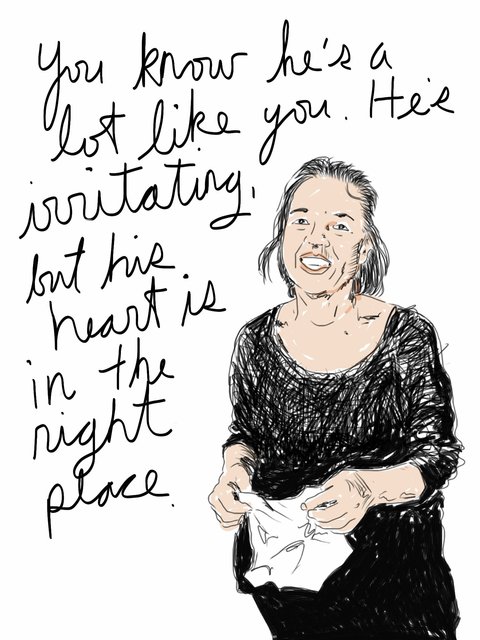 You know he's a
lot like you. He's
irritating,
but his
heart is
in the
right
place.